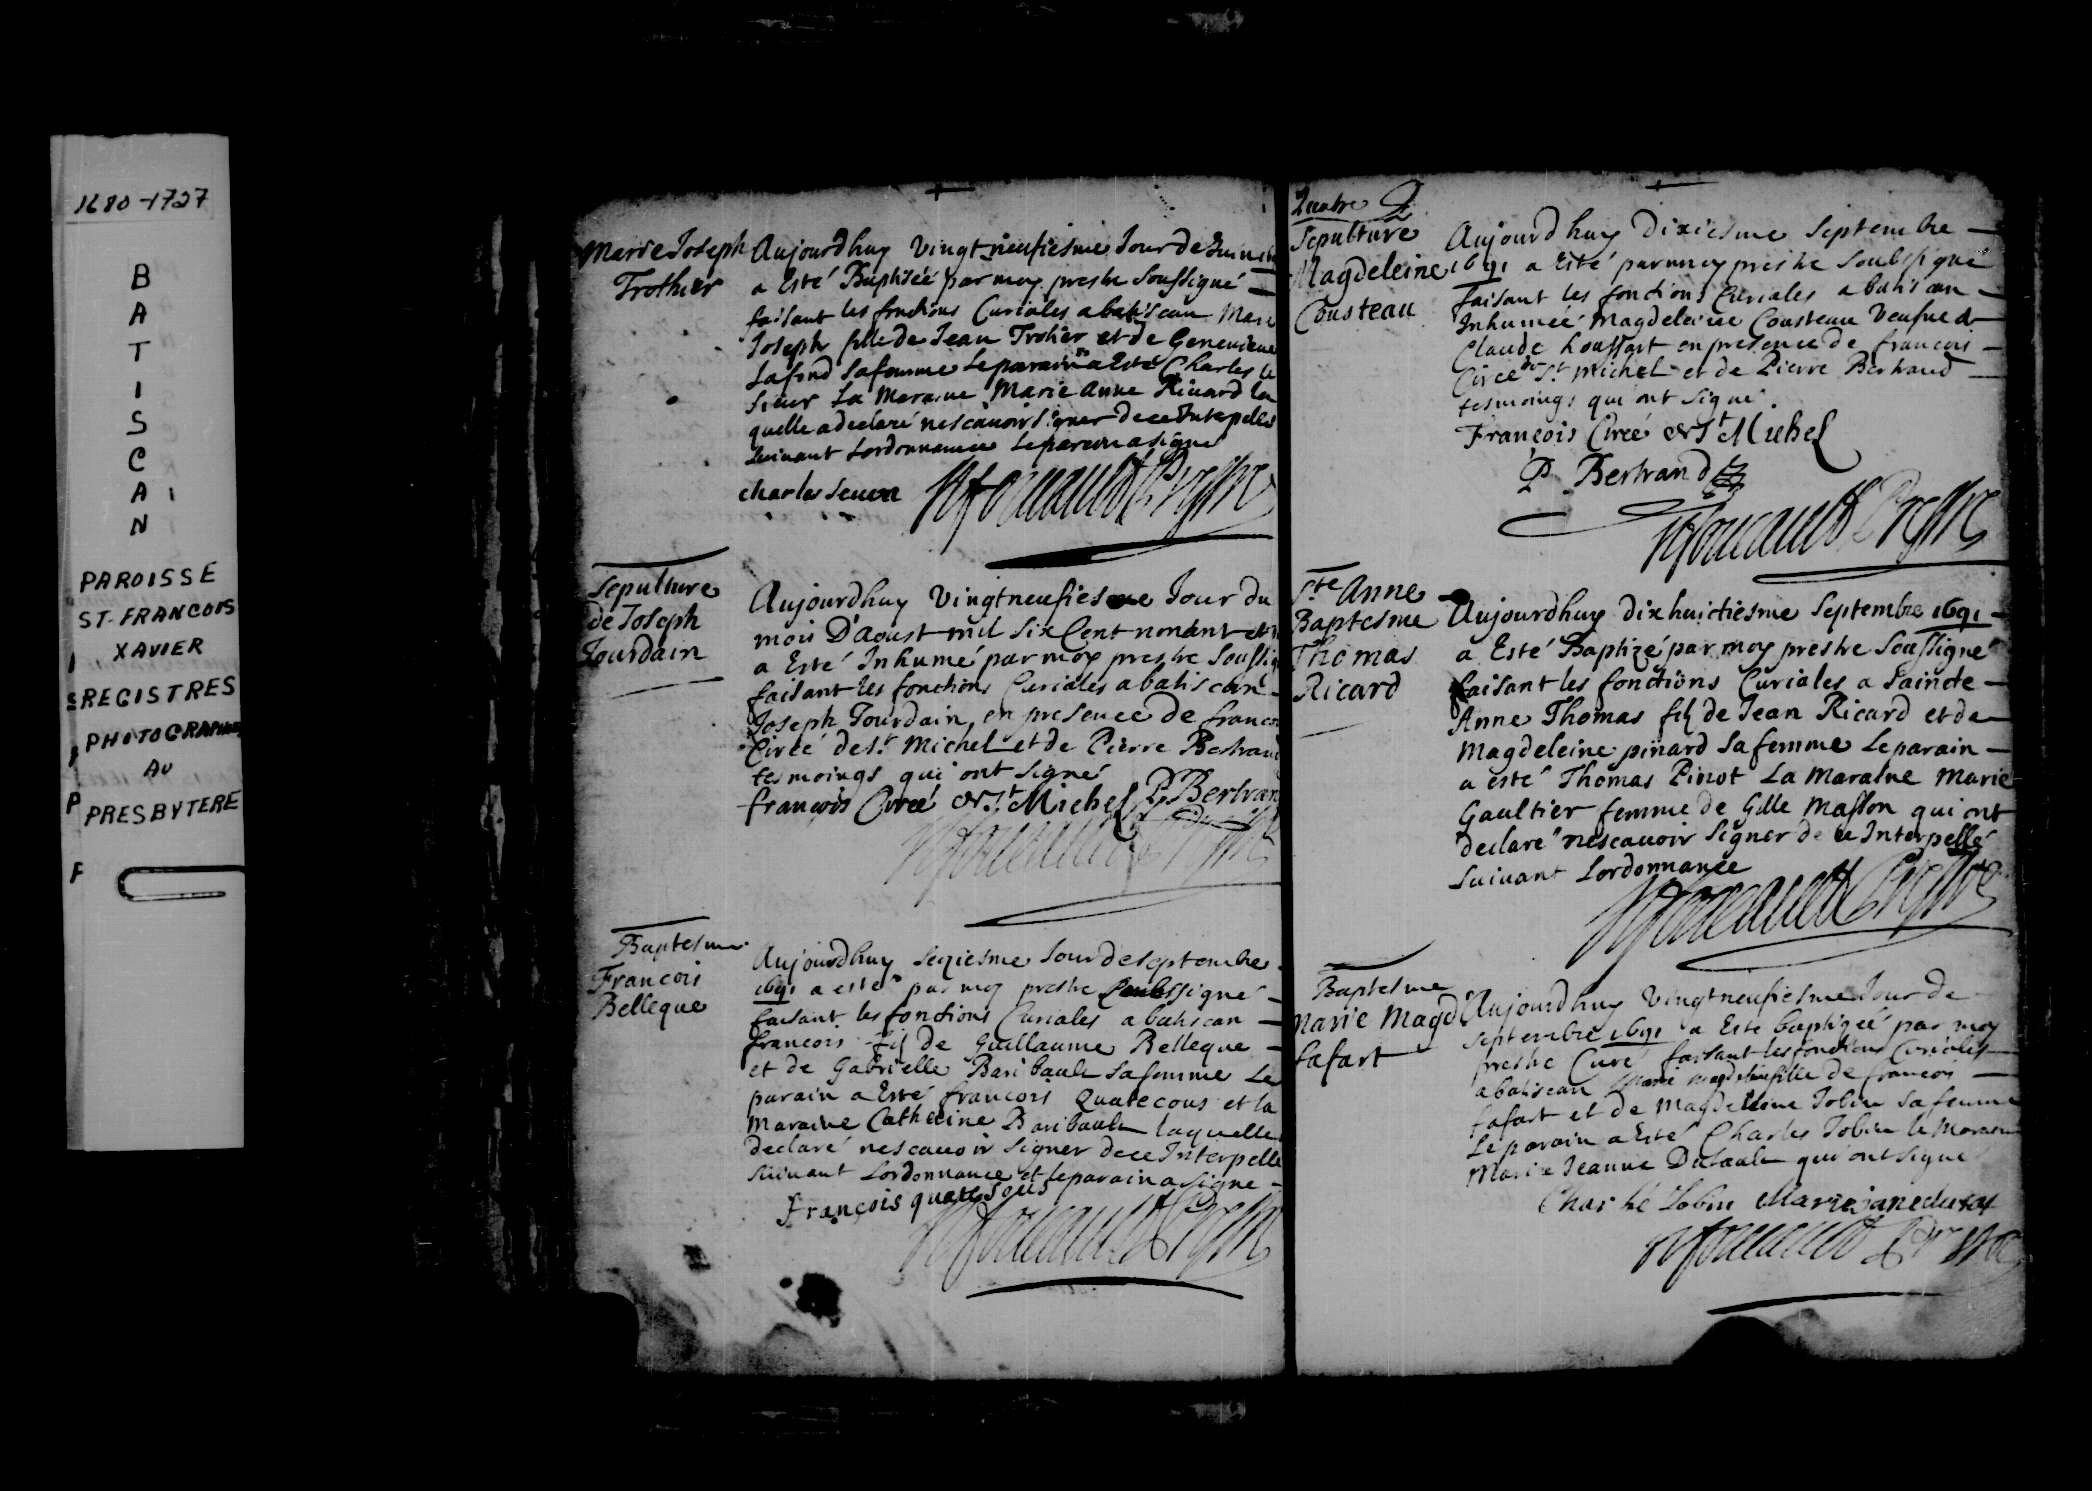 1680-1727
B
A
T
I
S
C
A
N
PAROISSE
ST-FRANCOIS
XAVIER
REGISTRES
PHOTOGRAPHIES
AU
PRESBYTERE
Marie Joseph
Trothier
Aujourdhuy vingt neufiesme Jour de
a Esté Baptisée par moy prestre soussigné
faisant les fonctions Curiales a batiscan Marie
Joseph fille de Jean Trotier et de Genevieve
Lafond sa femme Le parain a Esté Charles le
sieur La Maraine Marie Anne Rivard la
quelle a declaré nescavoir signer de ce Interpellé
suivant Lordonnance Le parain a signé
charles
Sepulture
de Joseph
Jourdain
Aujourdhuy vingtneufiesme Jour du
mois D'aoust mil six Cent nonant et
a Esté Inhumé par moy prestre soussig
faisant les fonctions Curiales a batiscan
Joseph Jourdain en presence de francois
Circé de St. Michel et de Pierre Bertrand
tesmoings qui ont signé
francois Circé St. Michel P. Bertrand
Baptesme
Francois
Belleque
Aujourdhuy seziesme Jour de septembre
1691 a esté par moy prestre soubssigné
faisant les fonctions Curiales a batiscan
francois fils de Guillaume Belleque
et de Gabrielle Baribault sa femme Le
parain a Esté francois Quatrecous et la
Maraine Catherine Baribault laquelle
declaré nescavoir signer de ce Interpellé
suivant Lordonnance et le parain a signé
François
Quatre
Sepulture
Magdeleine
Cousteau
Aujourdhuy dixiesme septembre
1691 a Esté par moy prestre soubsigné
faisant les fonctions Curiales a batiscan
Inhumée Magdeleine Cousteau veufue de
Claude houssart en presence de francois
Circé de St. Michel et de Pierre Bertrand
tesmoings qui ont signé.
François Circé St Michel
P. Bertrand
Ste Anne
Baptesme
Thomas
Ricard
Aujourdhuy dixhuictiesme Septembre 1691
a Esté Baptizé par moy prestre soussigné
faisant les fonctions Curiales a Saincte
Anne Thomas fils de Jean Ricard et de
Magdeleine pinard sa femme Le parain
a esté Thomas Pinot La Maraine Marie
Gaultier femme de Gille Masson qui ont
declaré nescavoir signer de ce Interpellé
suivant Lordonnance
Baptesme
Marie Magd
Lafart
Aujourdhuy vingtneufiesme Jour de
septembre 1691 a Esté baptizée par moy
prestre Curé faisant les fonctions Curiales
a batiscan Marie Magdeleine fille de francois
Lafart et de Magdelleine Jobin sa femme
Le parain a Esté Charles Jobin le Maraine
Marie Jeanne Dusault qui ont signé
Jobin Marie jane